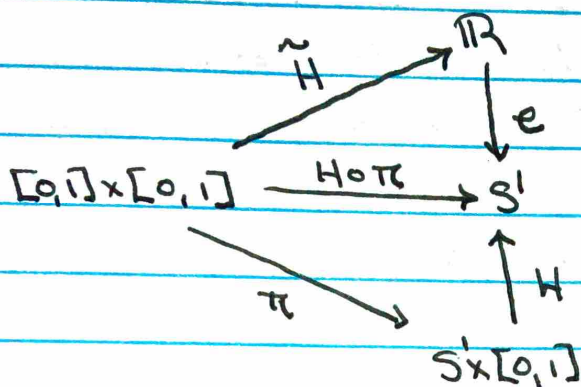 ℝ
H̃
e
[0,1]×[0,1]
H∘π
S¹
π
H
S¹×[0,1]